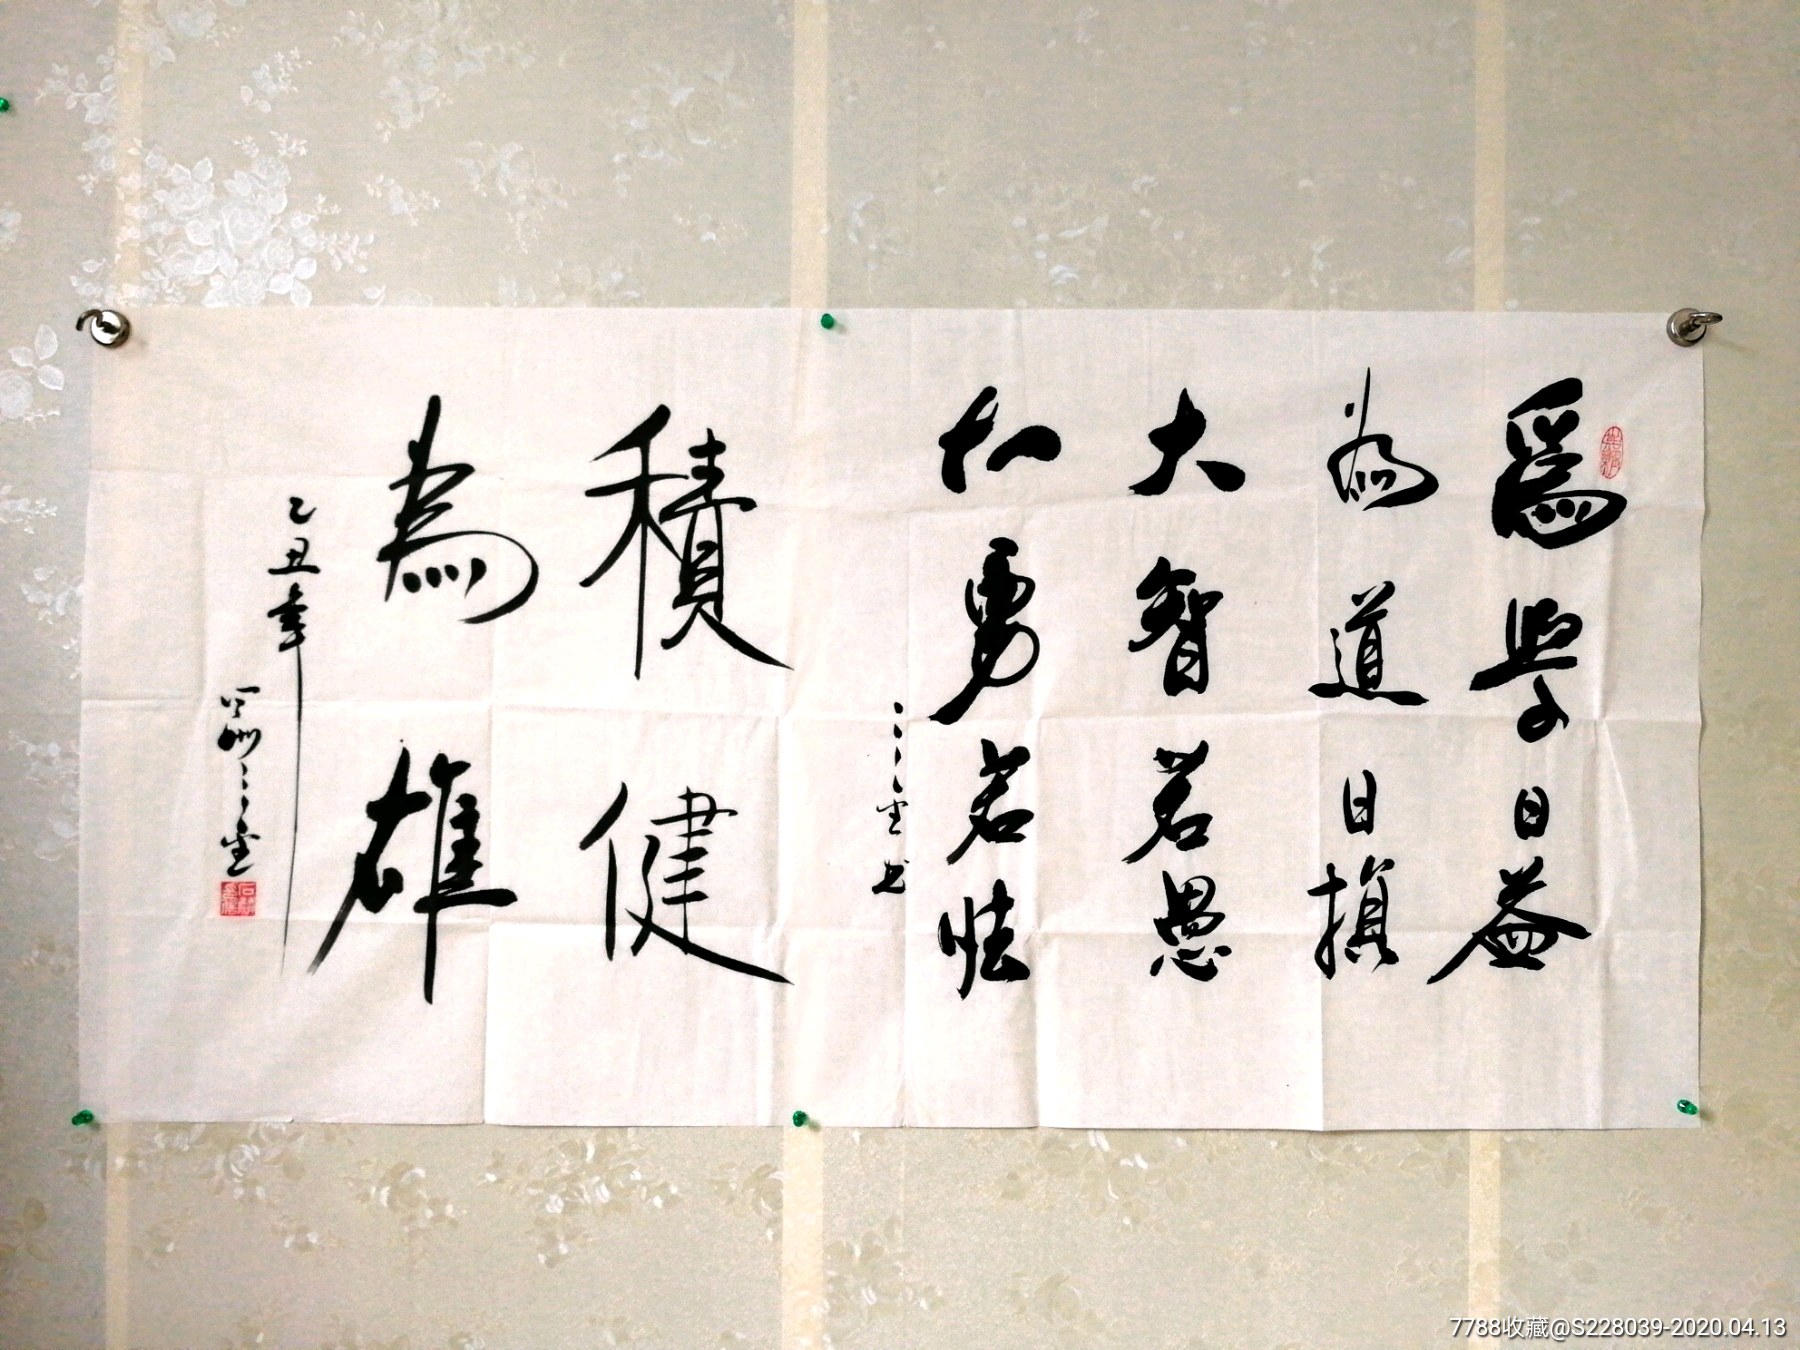 爲學日益
為道日損
大智若愚
大勇若怯
三三堂书
積健
為雄
乙丑年
三三堂
7788收藏@S228039-2020.04.13